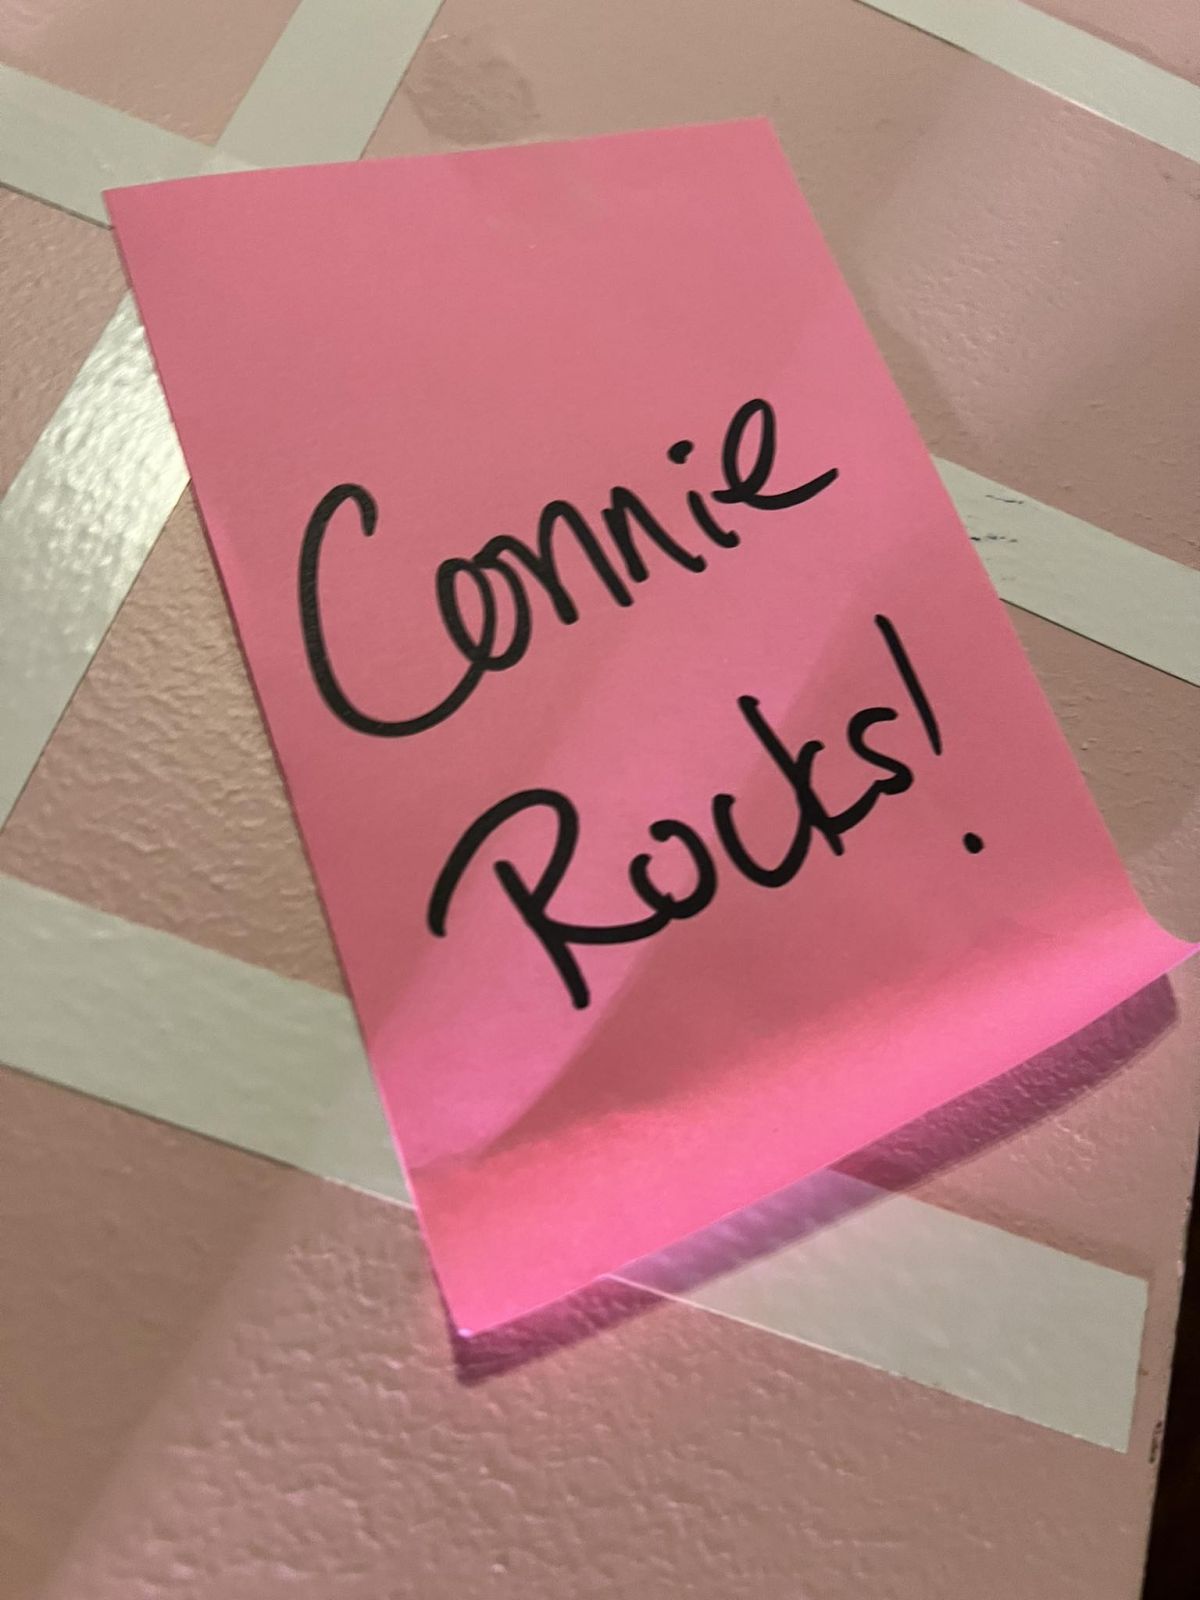 Connie
Rocks!